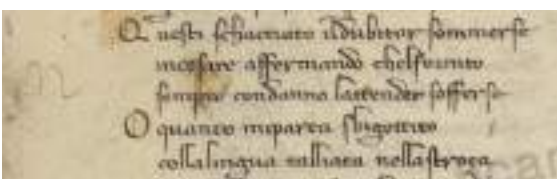 Questi schacciato il dubitar sommerse
in cesare affermando chelfornito
sempre con danno lattender sofferse
O quanto mi parea sbigottito
colla lingua talliata nella stroza